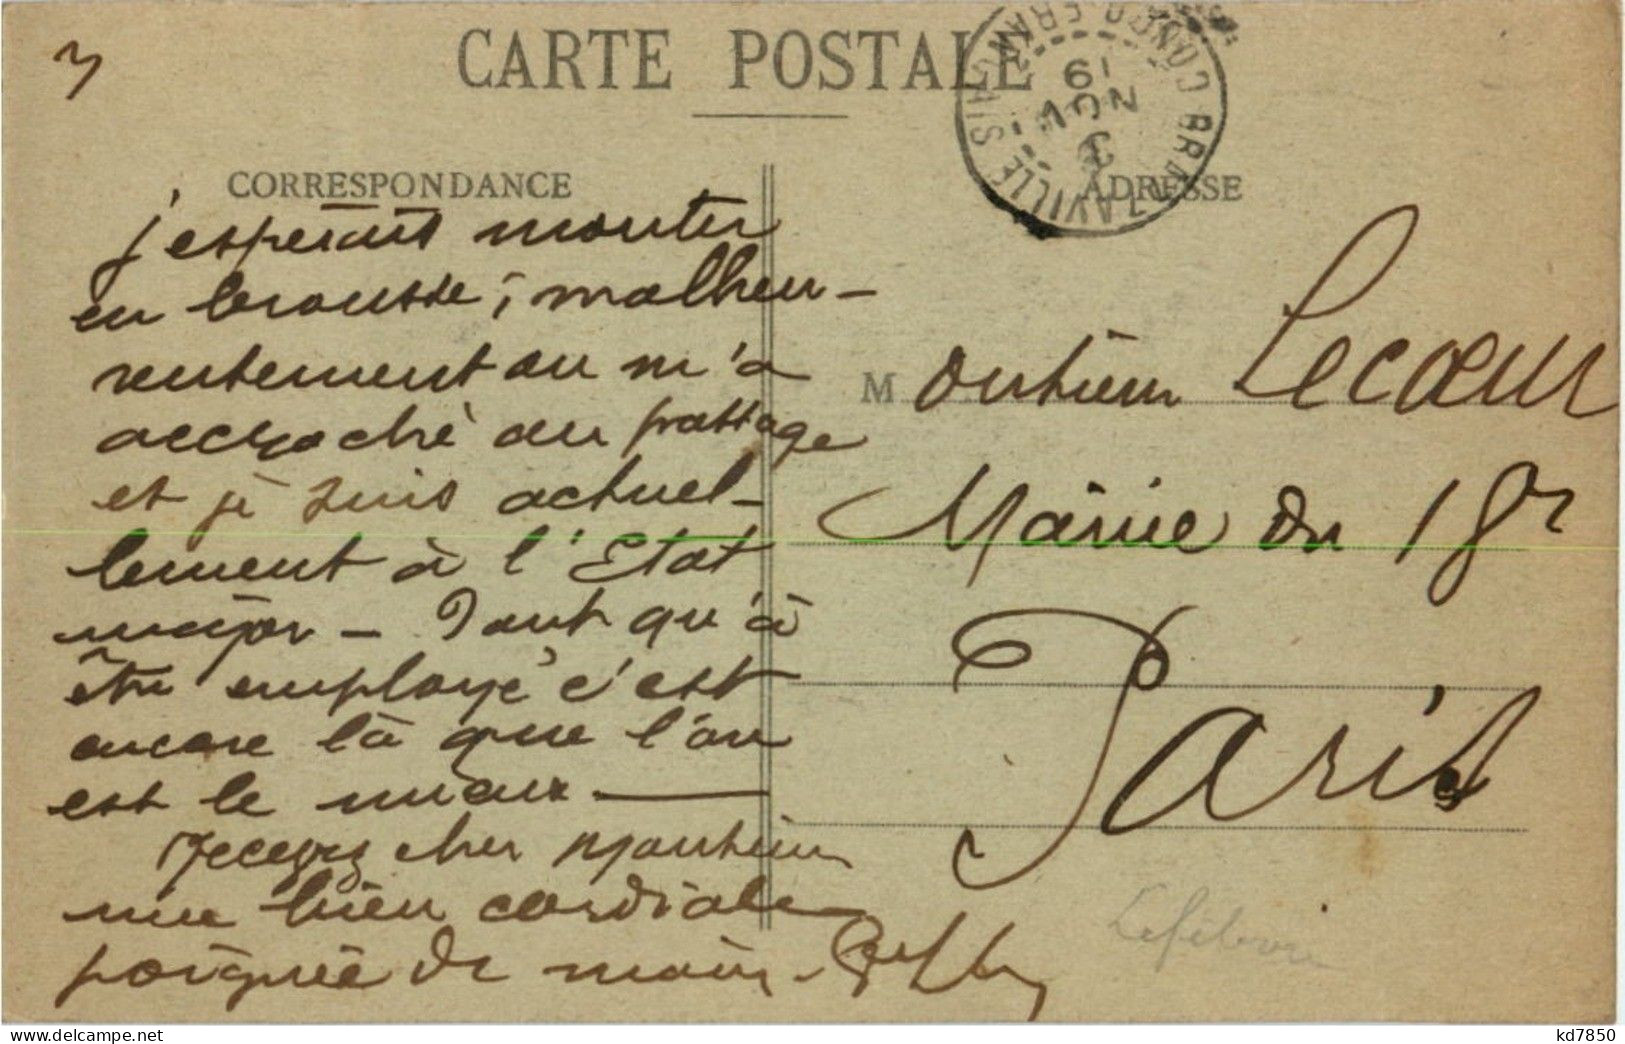 3
CARTE POSTALE
BRAZZAVILLE
CONGO FRANÇAIS
CORRESPONDANCE
ADRESSE
j'espérais monter
en brousse, malheu-
reusement on m'a
accroché au passage
et je suis actuel-
lement à l'Etat
major — Tant qu'à
être employé c'est
encore là que l'on
est le mieux —
Recevez cher Monsieur
une bien cordiale
poignée de main
Monsieur Lecœur
Mairie du 18e
Paris
Lefèbvre
kd7850